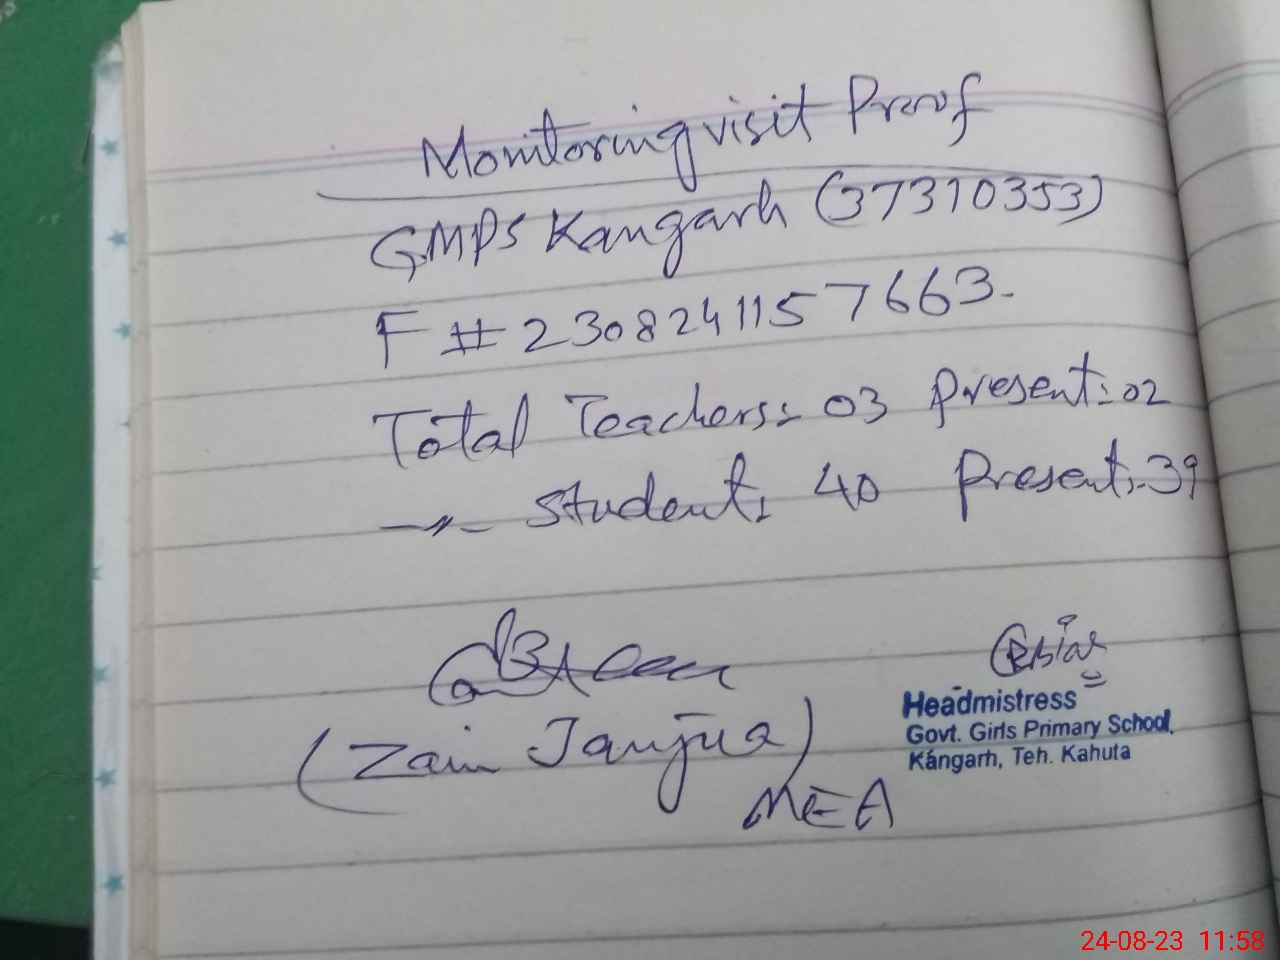 Monitoring visit Proof
GMPS Kangarh (37310353)
F # 2308241157663.
Total Teachers: 03 Present: 02
–〃– Student: 40 Present: 39
(Zain Janjua)
MEA
Headmistress
Govt. Girls Primary School,
Kangarh, Teh. Kahuta
24-08-23 11:58